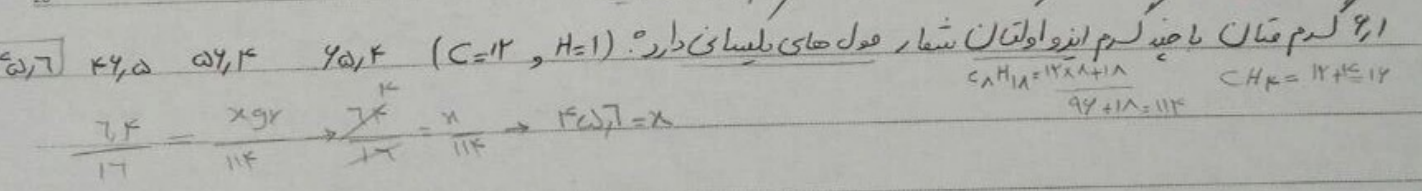 ۶٫۴ گرم متان با چند گرم ایزواوکتان شمار مول های یکسانی دارد؟ (C=۱۲ , H=۱) ۶۵٫۴ ۵۶٫۴ ۴۶٫۵ ۴۵٫۶
CH۴ = ۱۲+۴=۱۶
C۸H۱۸=۱۲×۸+۱۸
۹۶+۱۸=۱۱۴
۶٫۴/۱۶ = x gr/۱۱۴ → ۶٫۴/۱۶ = x/۱۱۴ → ۴۵٫۶=x